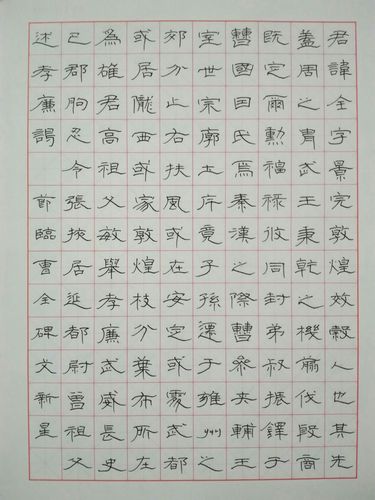 君諱全字景完敦煌效穀人也其先
蓋周之胄武王秉乾之機翦伐殷商
既定爾勲福祿攸同封弟叔振鐸于
曹國因氏焉秦漢之際曹參夾輔王
室世宗廓土斥竟子孫遷于雍州之
郊分止右扶風或在安定或處武都
或居隴西或家敦煌枝分葉布所在
為雄君高祖父敏舉孝廉武威長史
巳郡朐忍令張掖居延都尉曾祖父
述孝廉謁 節臨曹全碑文新星